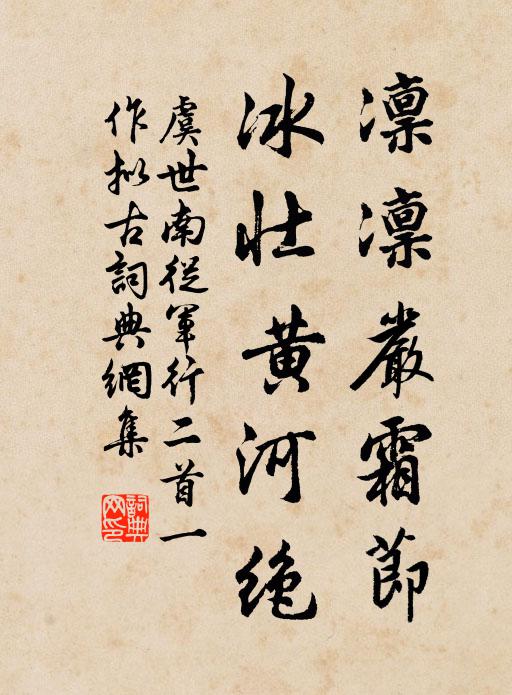 凜凜嚴霜節
冰壯黃河絕
虞世南從軍行二首一
作拟古詞典網集
詞典
网印